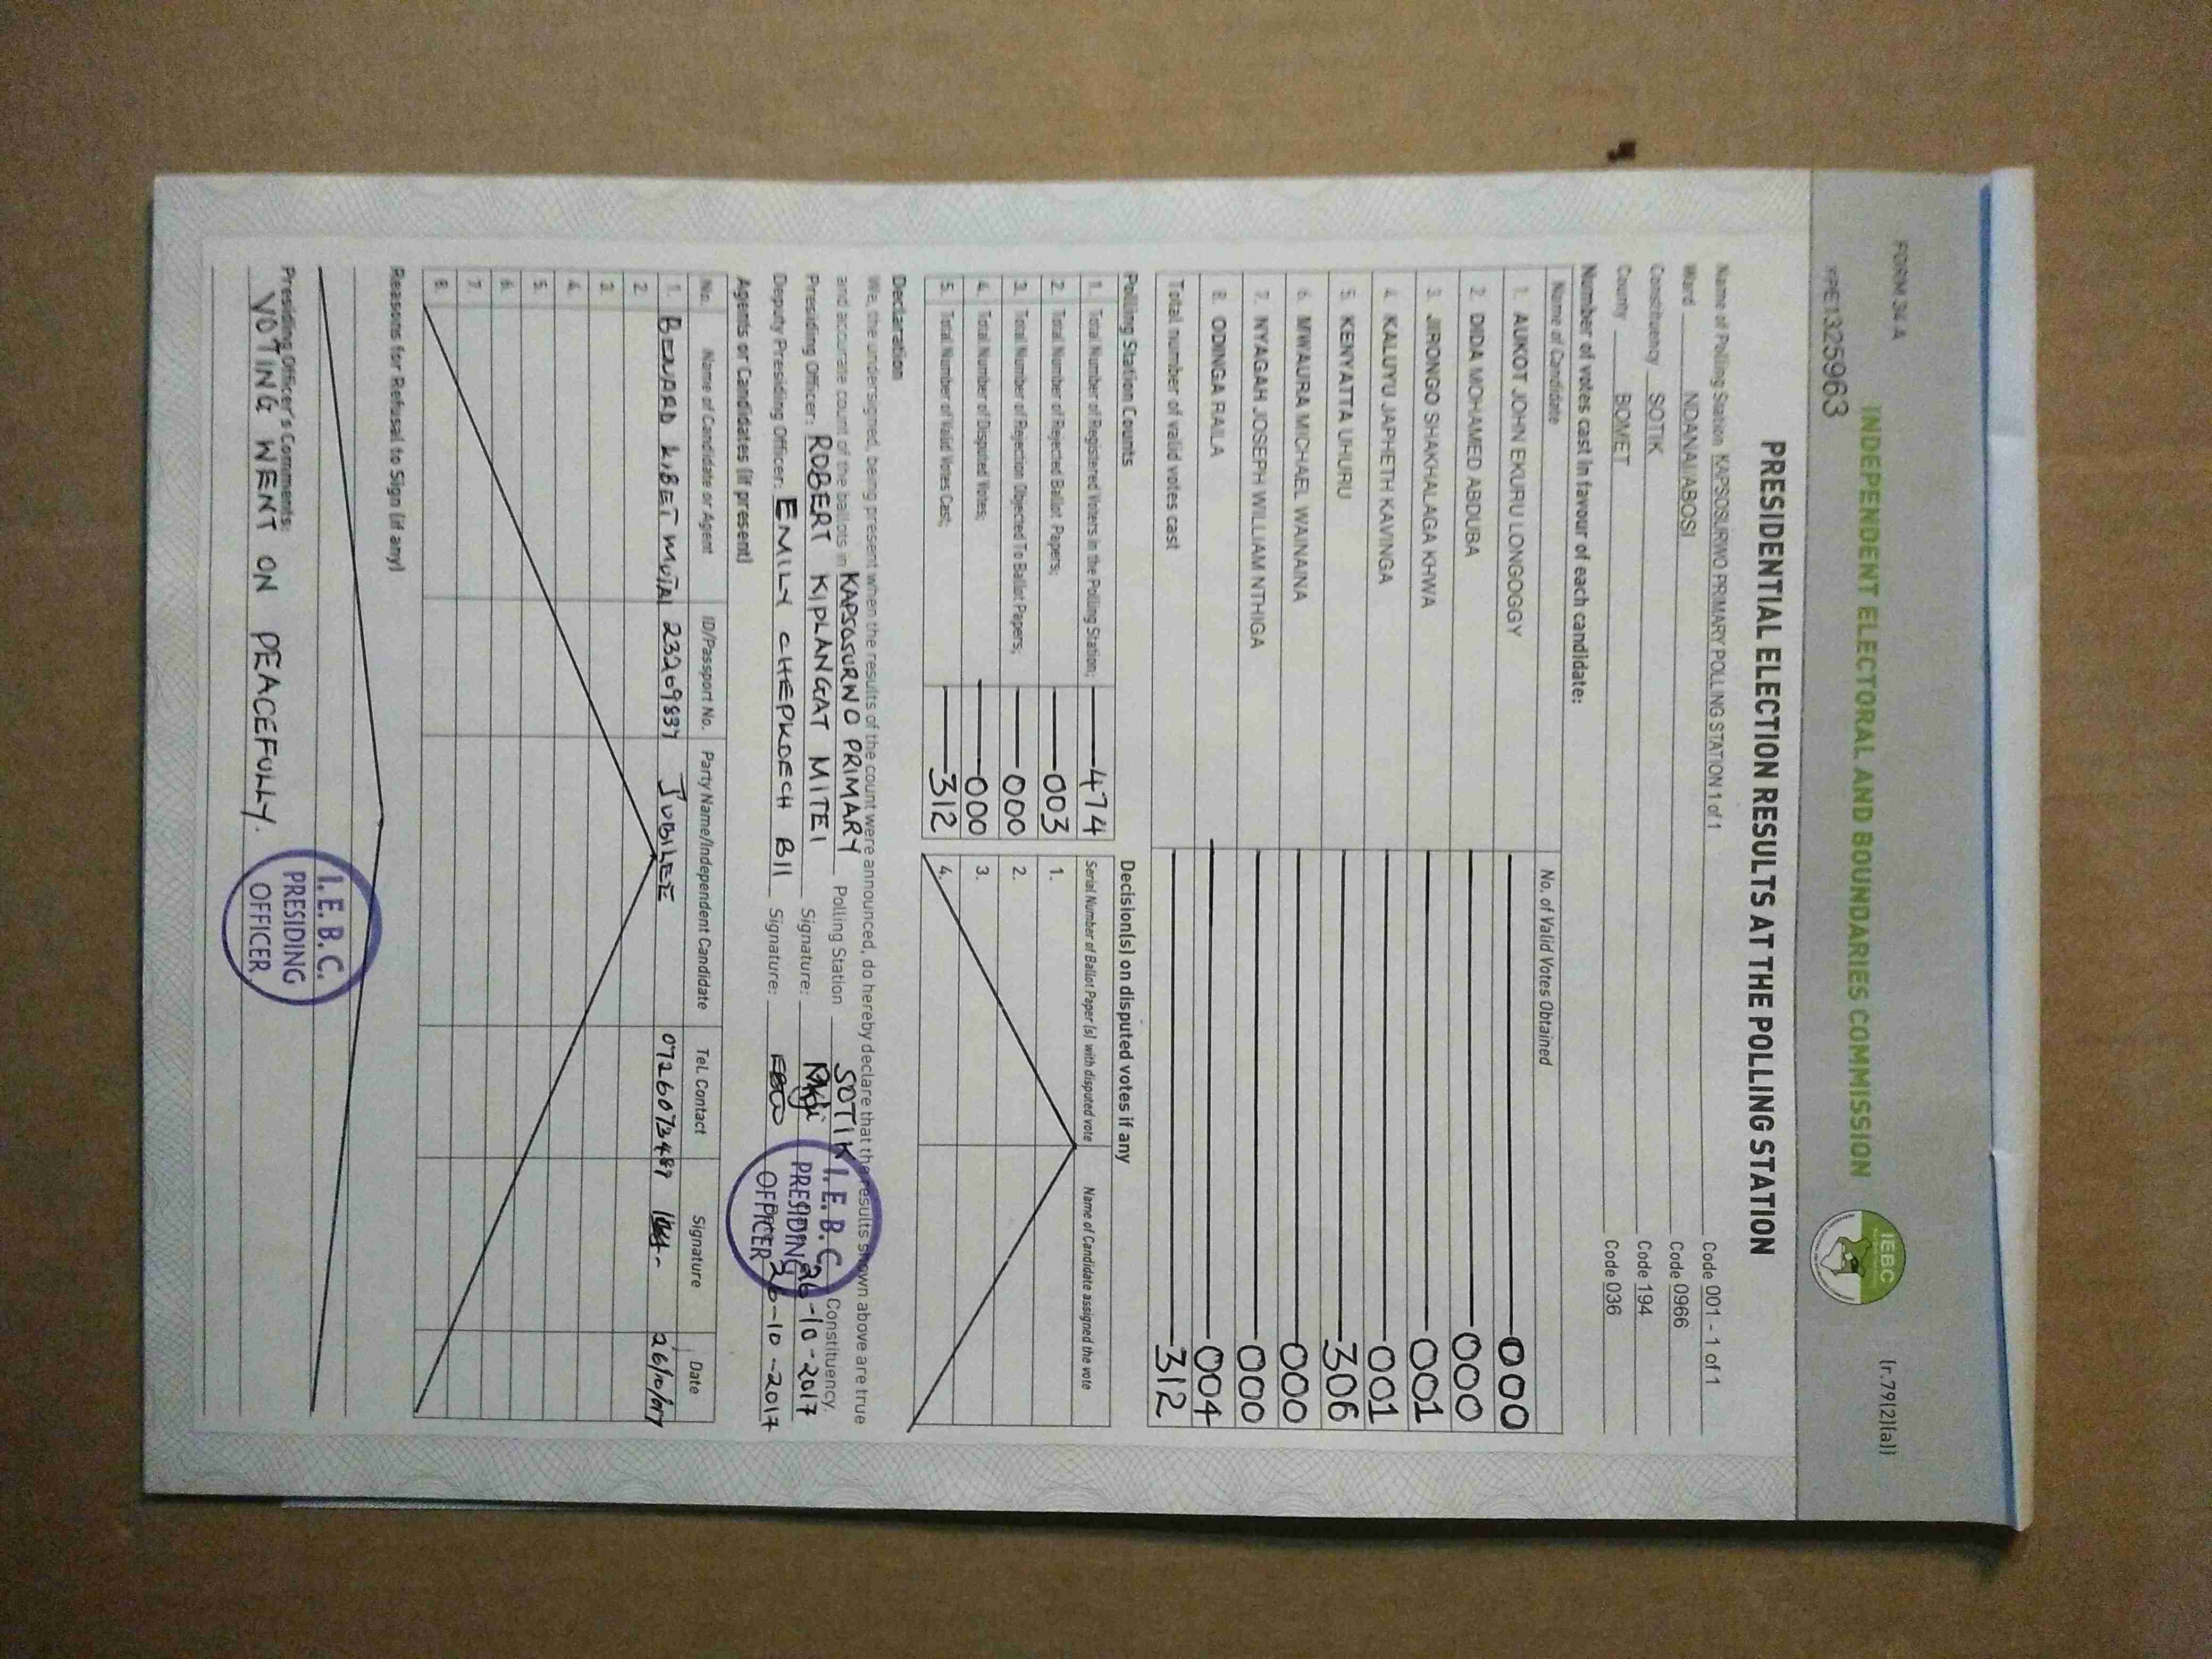 FORM 34 A
(r.79(2)(a))
INDEPENDENT ELECTORAL AND BOUNDARIES COMMISSION
IEBC
PE1325963
PRESIDENTIAL ELECTION RESULTS AT THE POLLING STATION
Name of Polling Station KAPSOSURWO PRIMARY POLLING STATION 1 of 1 Code 001 - 1 of 1
Ward NDANAI/ABOSI Code 0966
Constituency SOTIK Code 194
County BOMET Code 036
Number of votes cast in favour of each candidate:
Name of Candidate No. of Valid Votes Obtained
1. AUKOT JOHN EKURU LONGOGGY 000
2. DIDA MOHAMED ABDUBA 000
3. JIRONGO SHAKHALAGA KHWA 001
4. KALUYU JAPHETH KAVINGA 001
5. KENYATTA UHURU 306
6. MWAURA MICHAEL WAINAINA 000
7. NYAGAH JOSEPH WILLIAM NTHIGA 000
8. ODINGA RAILA 004
Total number of valid votes cast 312
Polling Station Counts
1. Total Number of Registered Voters in the Polling Station; 474
2. Total Number of Rejected Ballot Papers; 003
3. Total Number of Rejection Objected To Ballot Papers; 000
4. Total Number of Disputed Votes; 000
5. Total Number of Valid Votes Cast; 312
Decision(s) on disputed votes if any
Serial Number of Ballot Paper (s) with disputed vote Name of Candidate assigned the vote
1.
2.
3.
4.
Declaration
We, the undersigned, being present when the results of the count were announced, do hereby declare that the results shown above are true
and accurate count of the ballots in KAPSOSURWO PRIMARY Polling Station SOTIK Constituency.
Presiding Officer: ROBERT KIPLANGAT MITEI Signature: 26-10-2017
Deputy Presiding Officer: EMILY CHEPKOECH BII Signature: 26-10-2017
I.E.B.C.
PRESIDING
OFFICER
Agents or Candidates (if present)
No. Name of Candidate or Agent ID/Passport No. Party Name/Independent Candidate Tel. Contact Signature Date
1. BENARD KIBET MUTAI 23209837 JUBILEE 0726073489 26/10/017
2.
3.
4.
5.
6.
7.
8.
Reasons for Refusal to Sign (if any)
Presiding Officer's Comments:
VOTING WENT ON PEACEFULLY.
I.E.B.C.
PRESIDING
OFFICER